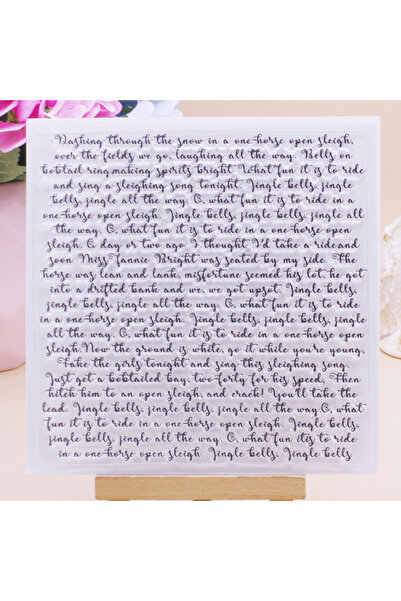 Dashing through the snow in a one-horse open sleigh,
over the fields we go, laughing all the way. Bells on
bobtail ring,making spirits bright What fun it is to ride
and sing a sleighing song tonight. Jingle bells, jingle
bells, jingle all the way. O, what fun it is to ride in a
one-horse open sleigh. Jingle bells, jingle bells, jingle all
the way. O, what fun it is to ride in a one-horse open
sleigh. A day or two ago I thought I'd take a ride.and
soon Miss Fannie Bright was seated by my side. The
horse was lean and lank, misfortune seemed his lot, he got
into a drifted bank and we, we got upsot. Jingle bells,
jingle bells, jingle all the way. O, what fun it is to ride
in a one-horse open sleigh, Jingle bells, jingle bells, jingle
all the way. O, what fun it is to ride in a one-horse open
sleigh.Now the ground is white, go it while you're young.
Take the girls tonight and sing this sleighing song.
Just get a bobtailed bay, two-forty for his speed, Then
hitch him to an open sleigh, and crack! You'll take the
lead. Jingle bells, jingle bells, jingle all the way.O, what
fun it is to ride in a one-horse open sleigh. Jingle bells,
jingle bells, jingle all the way. O, what fun it is to ride
in a one-horse open sleigh. Jingle bells, Jingle bells